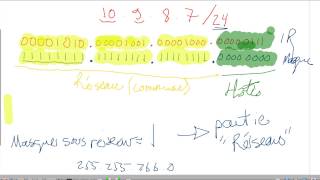 10 9 8 . 7 /24
00001010 . 00001001 . 00001000 . 00000111 IP
11111111 . 11111111 . 11111111 . 0000 0000 Masque
Réseau (commune) Hôtes
Masques sous reseau = ↓ → partie
"Réseau"
255 255 266 0